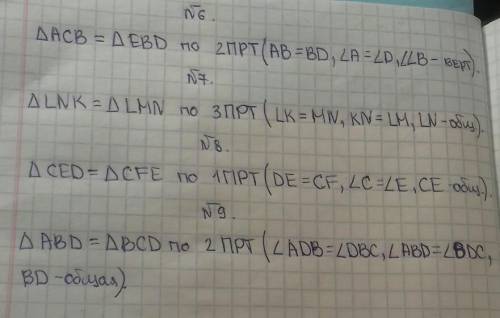 №6.
△ACB = △EBD по 2ПРТ (AB=BD, ∠A=∠D, ∠∠B - верт).
№7.
△LNK = △LMN по 3ПРТ (LK=MN, KN=LM, LN-общ).
№8.
△CED = △CFE по 1ПРТ (DE=CF, ∠C=∠E, CE-общ).
№9.
△ABD = △BCD по 2 ПРТ (∠ADB=∠DBC, ∠ABD=∠BDC,
BD-общая).